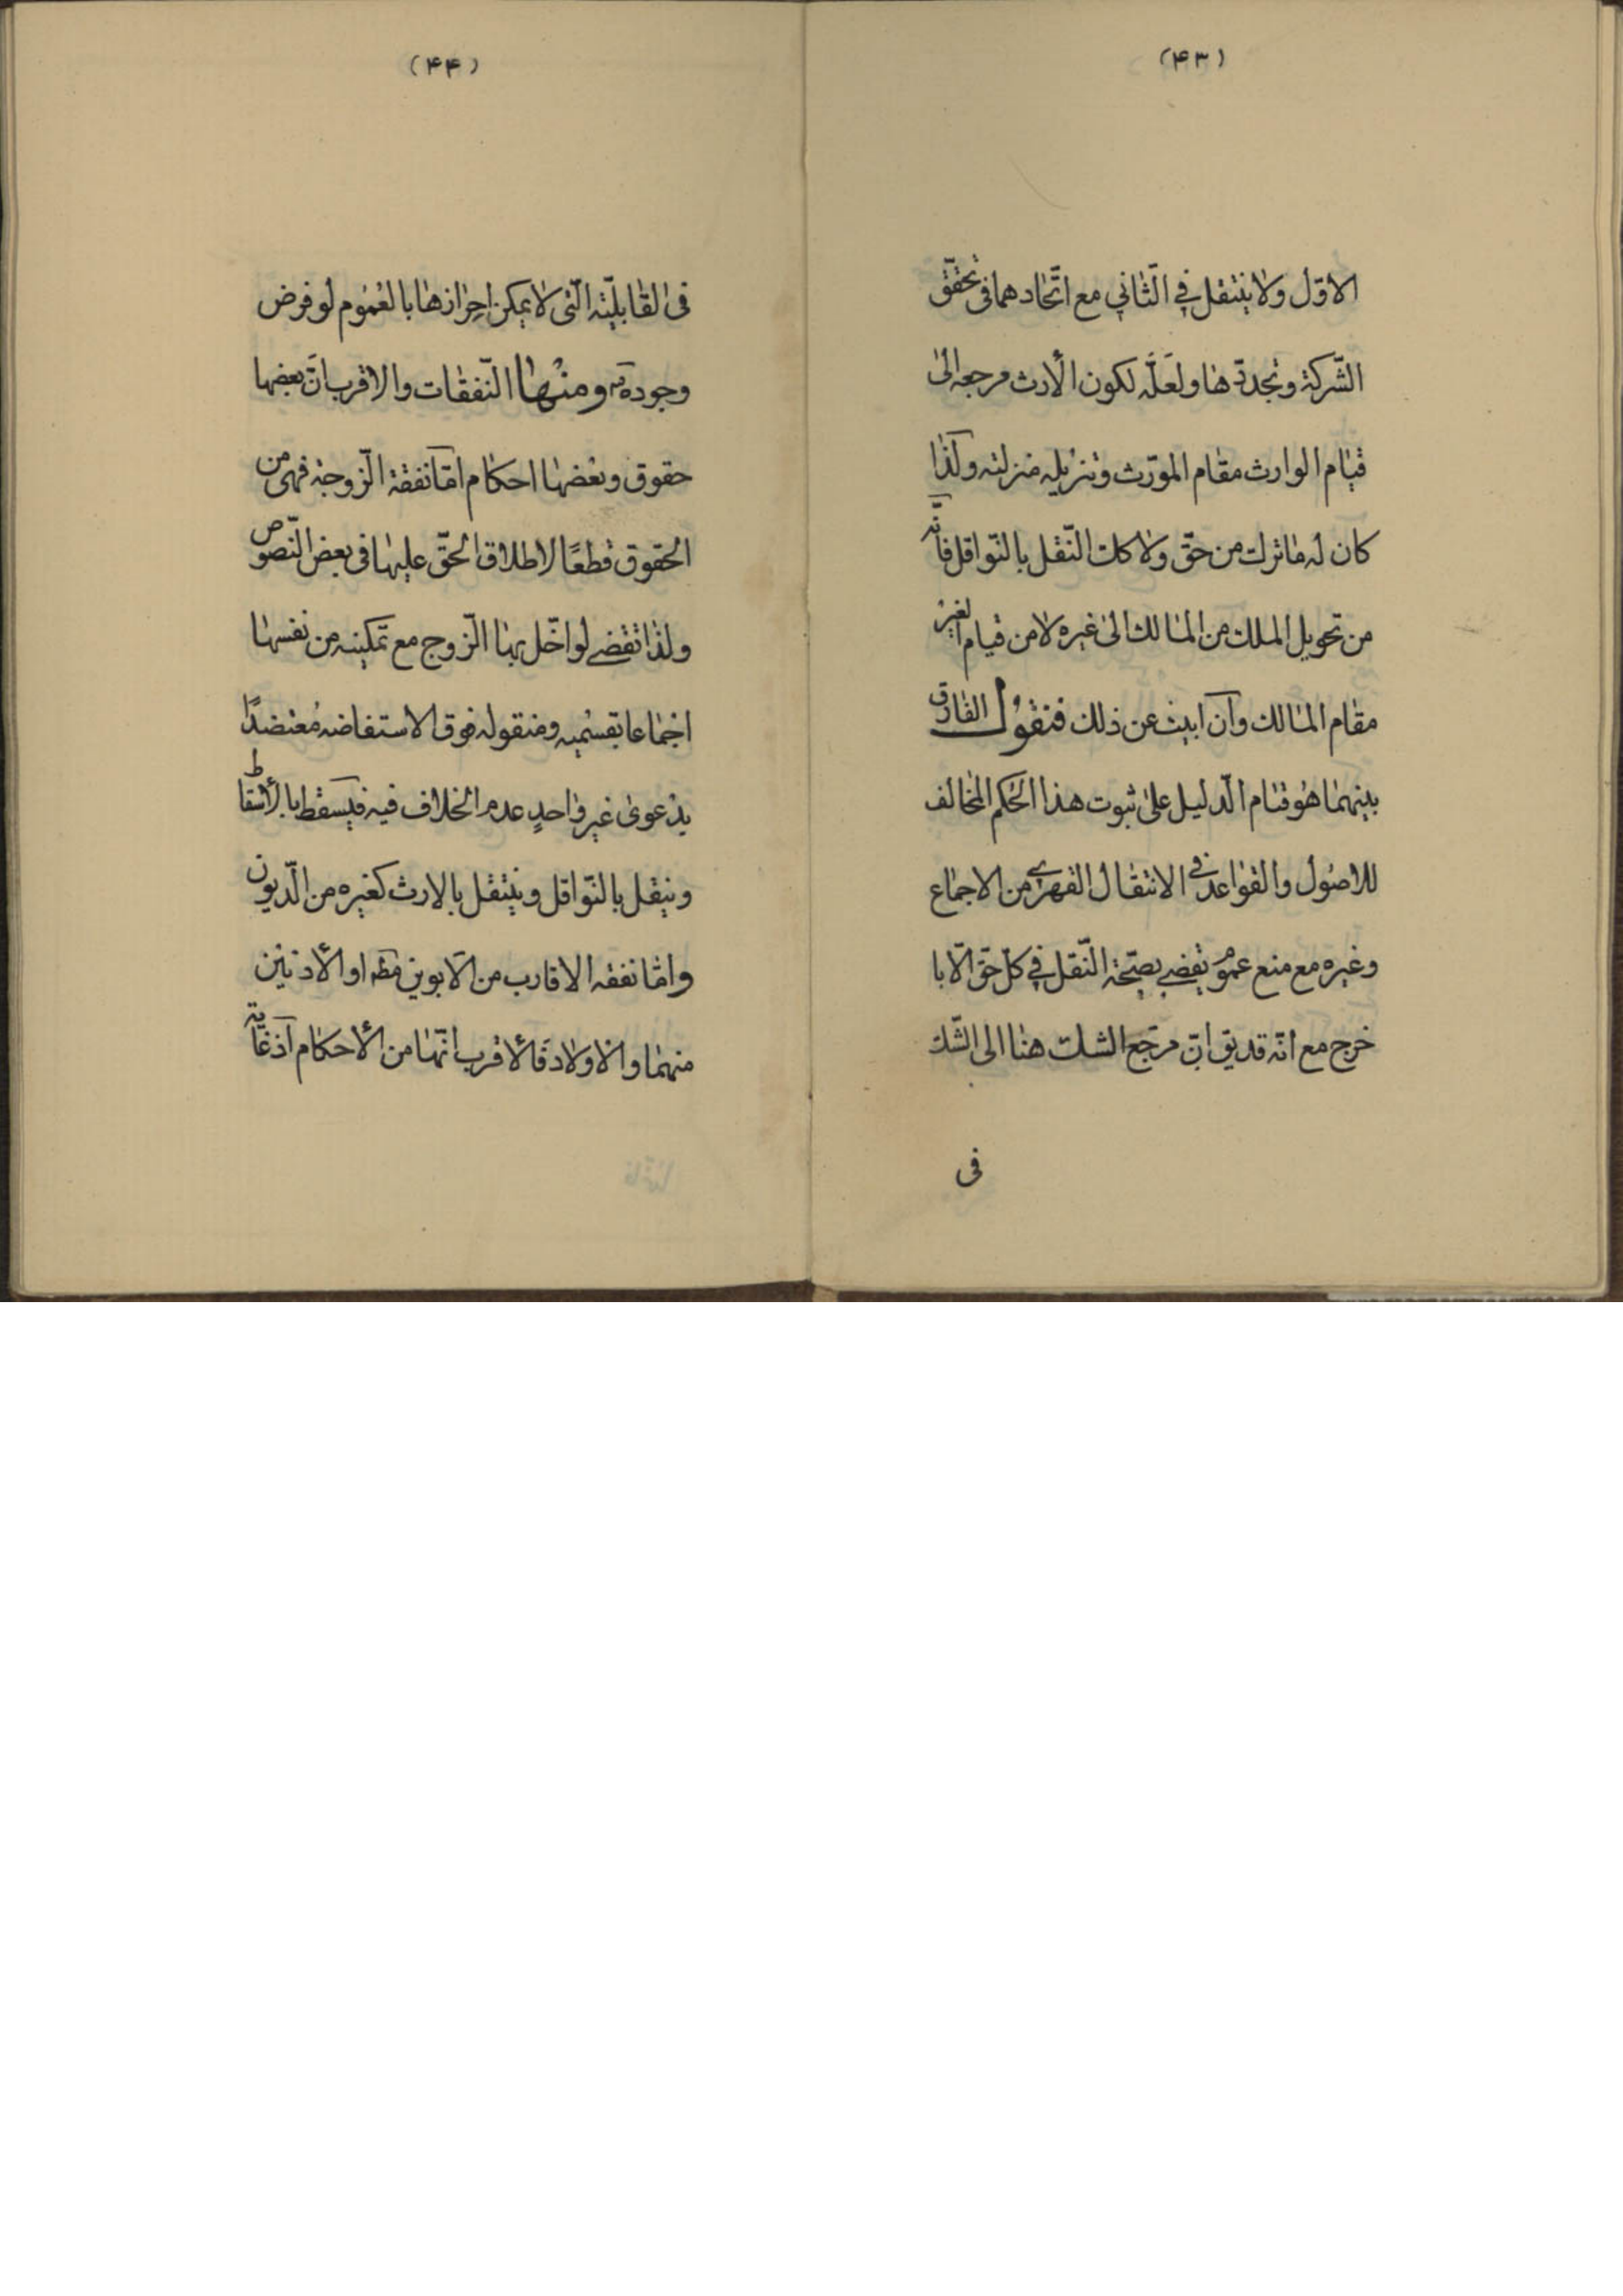 (۴۳)
الاوّل ولا ینتقل فی الثّانی مع اتّحادهما فی تحقّق
الشّرکة وتجدّدها ولعلّه لکون الأرث مرجعه الیٰ
قیام الوارث مقام المورّث وتنزیله منزلته ولذا
کان له ما ترک من حقّ ولا کک النّقل بالنّواقل فانّه
من تحویل الملک من المالک الیٰ غیره لا من قیام الغیر
مقام المالک وان ابیت عن ذلک فنقول الفارق
بینهما هو قیام الّدلیل علیٰ ثبوت هذا الحکم المخالف
للاصول والقواعد فی الانتقال القهری من الاجماع
وغیره مع منع عموم یقضی بصحّة النّقل فی کلّ حقّ الّا ما
خرج مع انّه قد یق انّ مرجع الشک هنا الی الشّک
فی
(۴۴)
فی القابلیّة الّتی لا یمکن احرازها بالعموم لو فرض
وجوده ومنها النّفقات والاقرب انّ بعضها
حقوق وبعضها احکام امّا نفقة الّزوجة فهی من
الحقوق قطعًا لاطلاق الحقّ علیها فی بعض النّصوص
ولذا تقضی لو اخّل بها الّزوج مع تمکینه من نفسها
اجماعا بقسمیه ومنقوله فوق الاستفاضه معتضدًا
بدعویٰ غیر واحدٍ عدم الخلاف فیه فیسقط بالأسقاط
وینقل بالنّواقل وینتقل بالارث کغیره من الّدیون
وامّا نفقه الاقارب من الابوین مطه او الأدنین
منهما والاولاد فالأقرب انّها من الأحکام اذ غایة